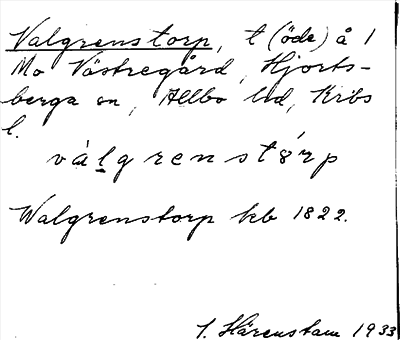 Valgrenstorp, t (öde) å 1
Mo Västregård, Hjorts-
berga sn, Allbo hd, Krbs
l.
válgrenstórp
Walgrenstorp kb 1822.
I. Härenstam 1933